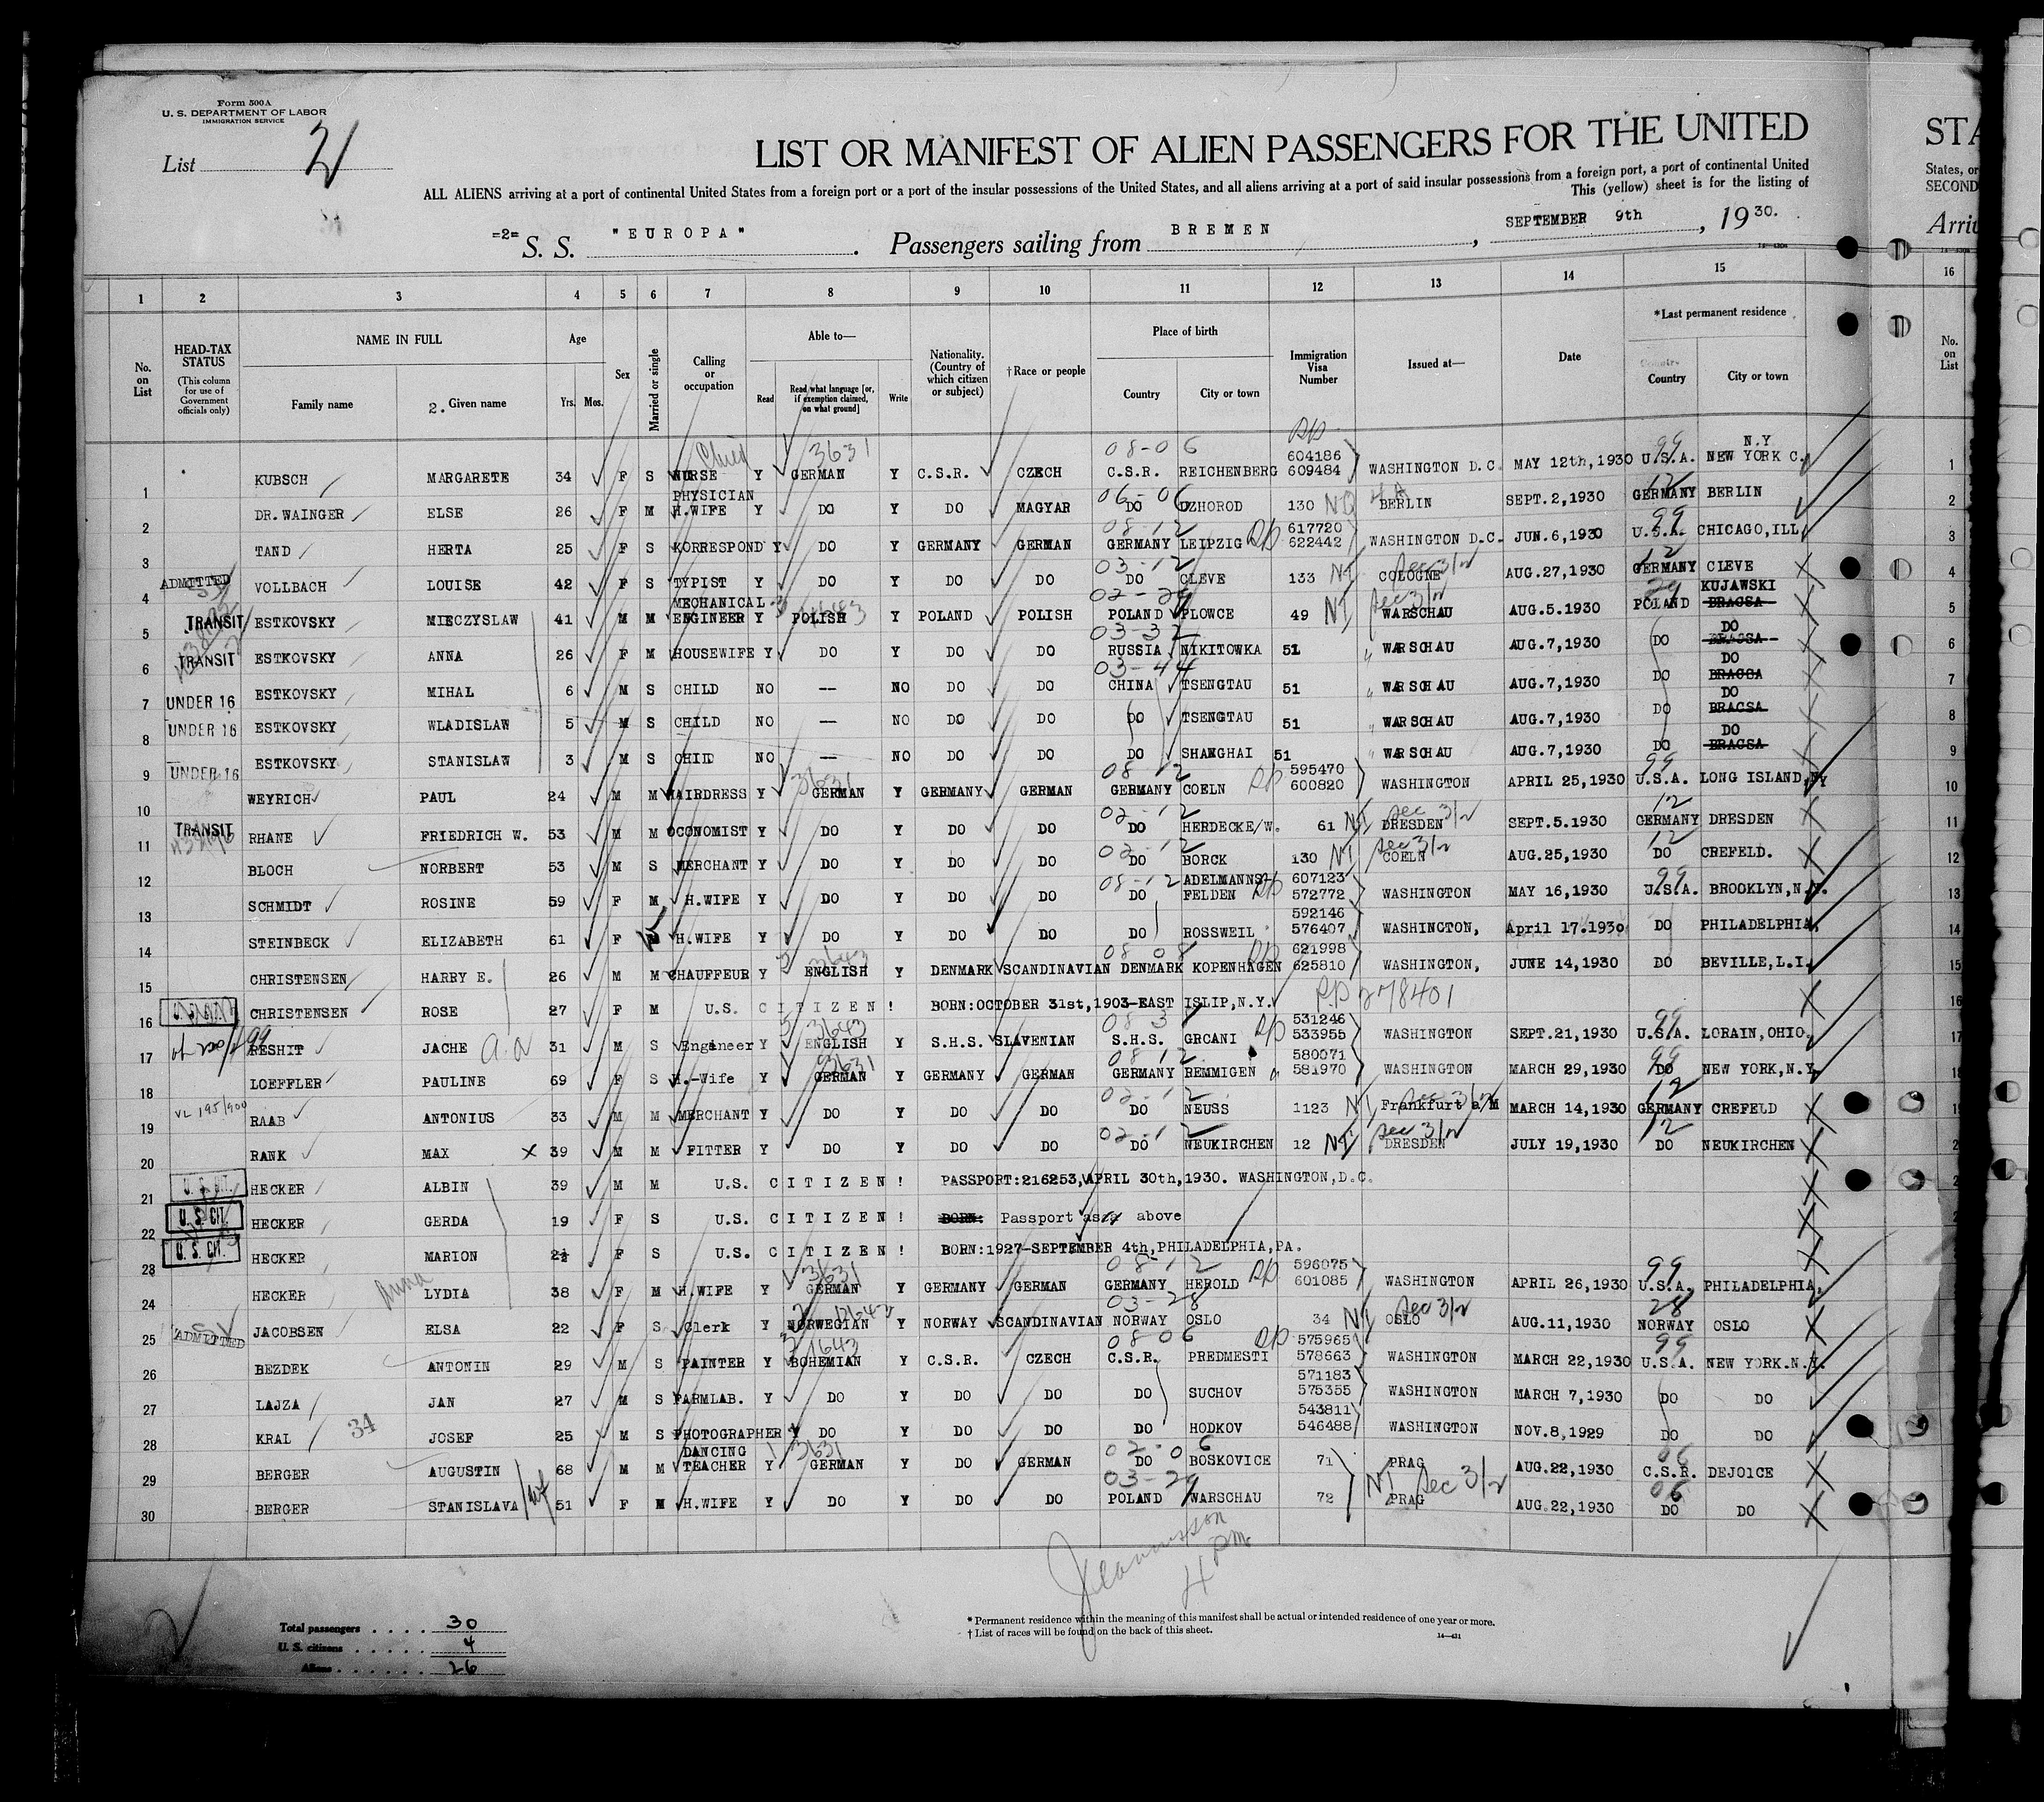 Form 500A
U. S. DEPARTMENT OF LABOR
IMMIGRATION SERVICE
List 21
LIST OR MANIFEST OF ALIEN PASSENGERS FOR THE UNITED
STA
ALL ALIENS arriving at a port of continental United States from a foreign port or a port of the insular possessions of the United States, and all aliens arriving at a port of said insular possessions from a foreign port, a port of continental United
States, or
This (yellow) sheet is for the listing of
SECOND
=2= S. S. "EUROPA". Passengers sailing from BREMEN, SEPTEMBER 9th, 1930.
Arri
1 2 3 4 5 6 7 8 9 10 11 12 13 14 15 16
No. on List
HEAD-TAX STATUS (This column for use of Government officials only)
NAME IN FULL Family name 2. Given name
Age Yrs. Mos.
Sex
Married or single
Calling or occupation
Able to— Read Read what language [or, if exemption claimed, on what ground] Write
Nationality. (Country of which citizen or subject)
†Race or people
Place of birth Country City or town
Immigration Visa Number
Issued at—
Date
*Last permanent residence Country City or town
No. on List
1 KUBSCH MARGARETE 34 F S NURSE Child Y GERMAN 3631 Y C.S.R. CZECH 08-06 C.S.R. REICHENBERG 604186 609484 WASHINGTON D.C. MAY 12th,1930 99 U.S.A. NEW YORK C. N.Y 1
2 DR.WAINGER ELSE 26 F M PHYSICIAN H.WIFE Y DO Y DO MAGYAR 06-06 DO UZHOROD 130 BERLIN SEPT.2,1930 12 GERMANY BERLIN 2
3 TAND HERTA 25 F S KORRESPOND Y DO Y GERMANY GERMAN 08-12 GERMANY LEIPZIG 617720 622442 WASHINGTON D.C. JUN.6,1930 99 U.S.A. CHICAGO,ILL, 3
4 ADMITTED VOLLBACH LOUISE 42 F S TYPIST Y DO Y DO DO 03-12 DO CLEVE 133 COLOGNE Sec 3/2 AUG.27,1930 12 GERMANY CLEVE 4
5 TRANSIT ESTKOVSKY MIECZYSLAW 41 M M MECHANICAL ENGINEER Y POLISH Y POLAND POLISH POLAND PLOWCE 49 WARSCHAU Sec 3/2 AUG.5.1930 POLAND KUJAWSKI BRACSA 5
6 TRANSIT ESTKOVSKY ANNA 26 F M HOUSEWIFE Y DO Y DO DO RUSSIA NIKITOWKA 51 " WARSCHAU AUG.7,1930 DO DO BRACSA 6
7 UNDER 16 ESTKOVSKY MIHAL 6 M S CHILD NO -- NO DO DO 03-44 CHINA TSENGTAU 51 " WARSCHAU AUG.7,1930 DO DO BRACSA 7
8 UNDER 16 ESTKOVSKY WLADISLAW 5 M S CHILD NO -- NO DO DO DO TSENGTAU 51 " WARSCHAU AUG.7,1930 DO DO BRACSA 8
9 UNDER 16 ESTKOVSKY STANISLAW 3 M S CHILD NO -- NO DO DO DO SHANGHAI 51 " WARSCHAU AUG.7,1930 DO DO BRACSA 9
10 WEYRICH PAUL 24 M M HAIRDRESS Y GERMAN 3631 Y GERMANY GERMAN 08-12 GERMANY COELN 595470 600820 WASHINGTON APRIL 25,1930 99 U.S.A. LONG ISLAND,NY 10
11 TRANSIT RHANE FRIEDRICH W. 53 M M OCONOMIST Y DO Y DO DO 02-12 DO HERDECKE/W. 61 DRESDEN Sec 3/2 SEPT.5.1930 12 GERMANY DRESDEN 11
12 BLOCH NORBERT 53 M S MERCHANT Y DO Y DO DO 02-12 DO BORCK 130 COELN Sec 3/2 AUG.25,1930 12 DO CREFELD. 12
13 SCHMIDT ROSINE 59 F M H.WIFE Y DO Y DO DO 08-12 DO ADELMANNS- FELDEN 607123 572772 WASHINGTON MAY 16,1930 99 U.S.A. BROOKLYN,N.Y. 13
14 STEINBECK ELIZABETH 61 F H.WIFE Y DO Y DO DO DO ROSSWEIL 592146 576407 WASHINGTON, April 17.1930 DO PHILADELPHIA, 14
15 CHRISTENSEN HARRY E. 26 M M CHAUFFEUR Y ENGLISH 3643 Y DENMARK SCANDINAVIAN 08 08 DENMARK KOPENHAGEN 621998 625810 WASHINGTON, JUNE 14,1930 DO BEVILLE,L.I. 15
16 CHRISTENSEN ROSE 27 F M U.S. CITIZEN! BORN:OCTOBER 31st,1903-EAST ISLIP,N.Y. PP 278401 16
17 RESHIT JACHE 31 M S Engineer Y ENGLISH 3643 Y S.H.S. SLAVENIAN S.H.S. GRCANI 531246 533955 WASHINGTON SEPT.21,1930 99 U.S.A. LORAIN,OHIO, 17
18 LOEFFLER PAULINE 69 F S H.-Wife Y GERMAN 3631 Y GERMANY GERMAN 08-12 GERMANY REMMIGEN 580071 581970 WASHINGTON MARCH 29,1930 99 DO NEW YORK,N.Y. 18
19 RAAB ANTONIUS 33 M M MERCHANT Y DO Y DO DO 02-12 DO NEUSS 1123 Frankfurt a/M Sec 3/2 MARCH 14,1930 12 GERMANY CREFELD
20 RANK MAX X 39 M M FITTER Y DO Y DO DO 02-12 DO NEUKIRCHEN 12 DRESDEN Sec 3/2 JULY 19,1930 12 DO NEUKIRCHEN
21 U. S. CIT. HECKER ALBIN 39 M M U.S. CITIZEN! PASSPORT:216253,APRIL 30th,1930. WASHINGTON,D.C.
22 U. S. CIT. HECKER GERDA 19 F S U.S. CITIZEN! BORN: Passport as above
23 U. S. CIT. HECKER MARION 2½ F S U.S. CITIZEN! BORN:1927-SEPTEMBER 4th,PHILADELPHIA,PA.
24 HECKER Anna LYDIA 38 F M H.WIFE Y GERMAN 3631 Y GERMANY GERMAN 08-12 GERMANY HEROLD 596075 601085 WASHINGTON APRIL 26,1930 99 U.S.A. PHILADELPHIA,
25 ADMITTED JACOBSEN ELSA 22 F S Clerk Y NORWEGIAN Y NORWAY SCANDINAVIAN 03-28 NORWAY OSLO 34 OSLO Sec 3/2 AUG.11,1930 28 NORWAY OSLO
26 BEZDEK ANTONIN 29 M S PAINTER Y BOHEMIAN Y C.S.R. CZECH 08 06 C.S.R. PREDMESTI 575965 578663 WASHINGTON MARCH 22,1930 99 U.S.A. NEW YORK.N.Y.
27 LAJZA JAN 27 M S FARMLAB. Y DO Y DO DO DO SUCHOV 571183 575355 WASHINGTON MARCH 7,1930 DO DO
28 KRAL 34 JOSEF 25 M S PHOTOGRAPHER Y DO Y DO DO DO HODKOV 543811 546488 WASHINGTON NOV.8,1929 DO DO
29 BERGER AUGUSTIN 68 M M DANCING TEACHER Y GERMAN 3631 Y DO GERMAN 02-06 DO BOSKOVICE 71 PRAG AUG.22,1930 06 C.S.R. DEJOICE
30 BERGER STANISLAVA 51 F M H.WIFE Y DO Y DO DO POLAND WARSCHAU 72 PRAG Sec 3/2 AUG.22,1930 06 DO DO
4 PM
Total passengers . . . . 30
U. S. citizens . . . . . 4
Aliens . . . . . . 26
* Permanent residence within the meaning of this manifest shall be actual or intended residence of one year or more.
† List of races will be found on the back of this sheet.
14—431